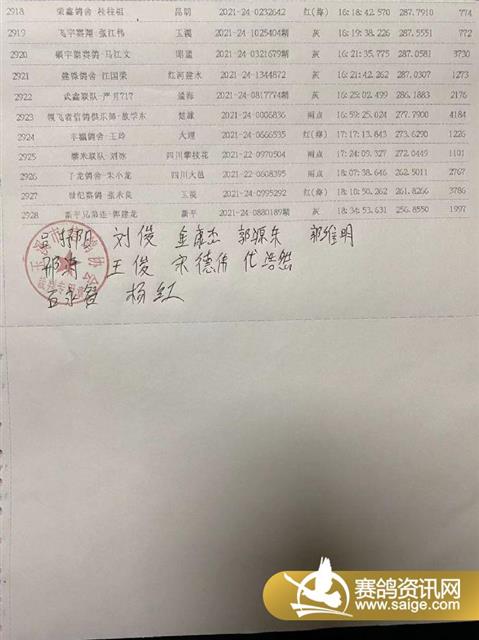 2918 荣鑫鸽舍-桂柱祖 昆明 2021-24-0232642 红(绛) 16:18:42.570 287.7910 774
2919 飞宇赛翔-张江伟 玉溪 2021-24-1025404期 灰 16:19:38.226 287.5551 772
2920 马江文 昭通 2021-24-0321679期 灰 16:21:35.775 287.0581 3730
2921 建锋鸽舍-江国荣 红河建水 2021-24-1344872 灰 16:21:42.262 287.0307 1273
2922 武鑫联队-严月717 通海 2021-24-0817774期 灰 16:25:02.499 286.1883 2176
2923 领飞者信鸽俱乐部-敖学东 楚雄 2021-24-0006836 雨点 16:59:25.024 277.7900 4184
2924 鸽舍-王玲 大理 2021-24-0666535 红(绛) 17:17:13.843 273.6290 1226
2925 攀米联队-刘冰 四川攀枝花 2021-22-0970504 雨点 17:24:09.327 272.0449 1101
2926 子龙鸽舍-朱小龙 四川大邑 2021-22-0608395 雨点 18:07:38.646 262.5011 2767
2927 世纪赛鸽-张永良 玉溪 2021-24-0995292 红(绛) 18:10:50.262 261.8266 3786
2928 新平兄弟连-郭建龙 新平 2021-24-0880189期 灰 18:34:53.630 256.8550 1997
刘俊 郭维明
王俊 宋德伟 代浩然
杨红
玉溪市 协会
裁判专用章
赛鸽资讯网
www.saige.com